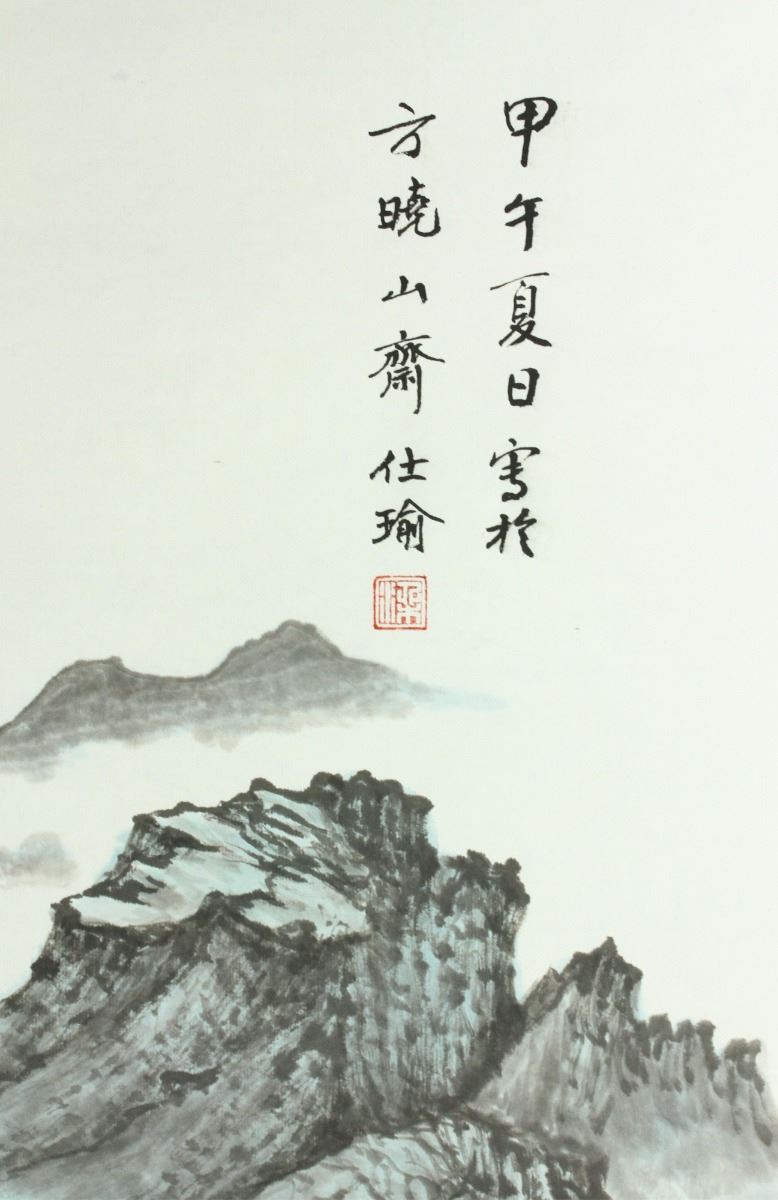 甲午夏日寫於
方曉山齋仕瑜
梁